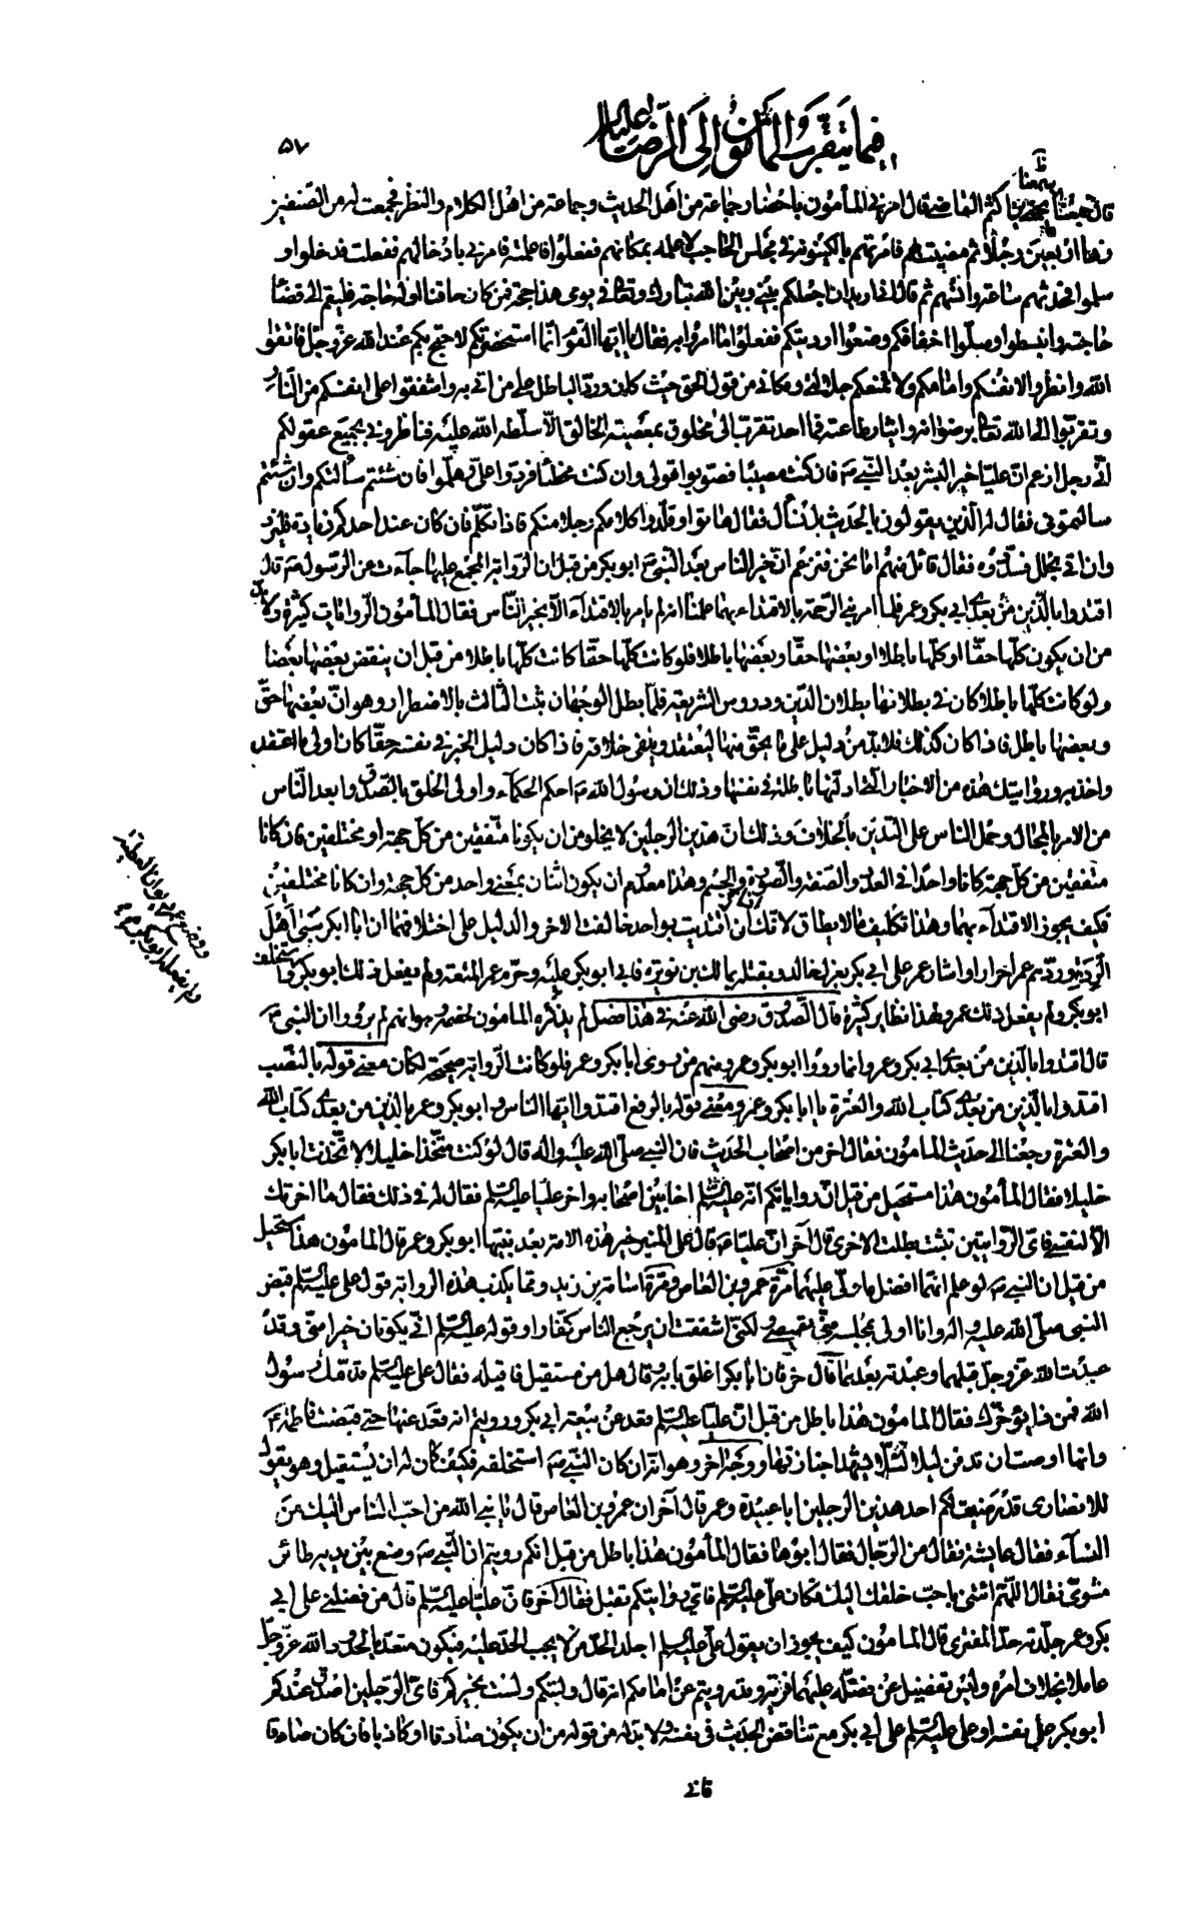 فيما يتقرب المأمون إلى الرضا عليه السلام
٥٧
قال يحيى بن اكثم القاضي قال امرني المأمون باحضار جماعة من اهل الحديث وجماعة من اهل الكلام والنظر فجمعت له من الصنفين
زهاء اربعين رجلا ثم مضيت بهم فامرتهم بالكينونة في مجلس الحاجب لاعلمه بمكانهم ففعلوا فاعلمته فامرني بادخالهم ففعلت فدخلوا و
سلموا فحدثهم ساعة وانسهم ثم قال اني اريد ان اجعلكم بيني وبين الله تبارك وتعالى في يومي هذا حجة فمن كان حاقنا او له حاجة فليقم الى قضاء
حاجته وانبسطوا وسلوا اخفافكم وضعوا ارديتكم ففعلوا ما امروا به فقال يا ايها القوم انما استحضرتكم لاحتج بكم عند الله عز وجل فاتقوا
الله وانظروا لانفسكم وامامكم ولا تمنعكم جلالتي ومكاني من قول الحق حيث كان ورد الباطل على من اتى به واشفقوا على انفسكم من النار
وتقربوا الى الله تعالى برضوانه وايثار طاعته فما احد تقرب الى مخلوق بمعصية الخالق الا سلطه الله عليه فناظروني بجميع عقولكم
اني رجل ازعم ان عليا خير البشر بعد النبي ص فان كنت مصيبا فصوبوا قولي وان كنت مخطئا فردوا علي وهلموا فان شئتم سألتكم وان شئتم
سالتموني فقال له الذين يقولون بالحديث بل نسأل فقال هاتوا وقلدوا كلامكم رجلا منكم فاذا تكلم فان كان عند احدكم زيادة فليزد
وان اتى بخلل فسددوه فقال قائل منهم اما نحن فنزعم ان خير الناس بعد النبي ص ابو بكر من قبل ان الرواية المجمع عليها جاءت عن الرسول ص قال
اقتدوا بالذين من بعدي ابي بكر وعمر فلما امر نبي الرحمة بالاقتداء بهما علمنا انه لم يامر بالاقتداء الا بخير الناس فقال المأمون الروايات كثيرة ولا بد
من ان يكون كلها حقا او كلها باطلا او بعضها حقا وبعضها باطلا فلو كانت كلها حقا كانت كلها باطلا من قبل ان ينقض بعضها بعضا
ولو كانت كلها باطلا كان في بطلانها بطلان الدين ودروس الشريعة فلما بطل الوجهان ثبت الثالث بالاضطرار وهو ان بعضها حق
وبعضها باطل فاذا كان كذلك فلا بد من دليل على ما يحق منها ليعتقد وينفى خلافه فاذا كان دليل الخبر في نفسه حقا كان اولى ما اعتقد
واخذ به وروايتك هذه من الاخبار التي ادلتها باطلة في نفسها وذلك ان رسول الله ص احكم الحكماء واولى الخلق بالصدق وابعد الناس
من الامر بالمحال وحمل الناس على التدين بالخلاف وذلك ان هذين الرجلين لا يخلو من ان يكونا متفقين من كل جهة او مختلفين فان كانا
متفقين من كل جهة كانا واحدا في العدد والصفة والصورة والجسم وهذا معدوم ان يكون اثنان بمعنى واحد من كل جهة وان كانا مختلفين
فكيف يجوز الاقتداء بهما وهذا تكليف ما لا يطاق لانك ان اقتديت بواحد خالفت الاخر والدليل على اختلافهما ان ابا بكر سبى اهل
الردة وردهم عمر احرارا واشار عمر على ابي بكر بعزل خالد وبقتله بمالك بن نويرة فابى ابو بكر عليه وحرم عمر المتعة ولم يفعل ذلك ابو بكر واستخلف
ووضع عمر ديوان العطية
ولم يفعله ابو بكر
ابو بكر ولم يفعل ذلك عمر ولهذا نظاير كثيرة قال الصدوق رضي الله عنه في هذا فصل لم يذكره المامون لخصمه وهو انهم لم يرووا ان النبي ص
قال اقتدوا بالذين من بعدي ابي بكر وعمر وانما رووا ابو بكر وعمر ومنهم من روى ابا بكر وعمر فلو كانت الرواية صحيحة لكان معنى قوله بالنصب
اقتدوا بالذين من بعدي كتاب الله والعترة يا ابا بكر وعمر ومعنى قوله بالرفع اقتدوا ايها الناس وابو بكر وعمر بالذين من بعدي كتاب الله
والعترة رجعنا الى حديث المامون فقال اخر من اصحاب الحديث فان النبي صلى الله عليه واله قال لو كنت متخذا خليلا لاتخذت ابا بكر
خليلا فقال المأمون هذا مستحيل من قبل ان رواياتكم انه عليه السلام اخا بين اصحابه واخر عليا عليه السلام فقال له في ذلك فقال ما اخرتك
الا لنفسي فاي الروايتين ثبتت بطلت الاخرى قال آخر ان عليا ع قال على المنبر خير هذه الامة بعد نبيها ابو بكر وعمر قال المامون هذا مستحيل
من قبل ان النبي ص لو علم انهما افضل ما ولى عليهما مرة عمرو بن العاص ومرة اسامة بن زيد ومما يكذب هذه الرواية قول علي عليه السلم قبض
النبي صلى الله عليه واله وانا اولى بمجلسه مني بقميصي ولكني اشفقت ان يرجع الناس كفارا وقوله عليه السلم انى يكونان خيرا مني وقد
عبدت الله عز وجل قبلهما وعبدته بعدهما قال آخر فان ابا بكر اغلق بابه وقال هل من مستقيل فاقيله فقال علي عليه السلم قدمك رسول
الله فمن ذا يؤخرك فقال المامون هذا باطل من قبل ان عليا عليه السلم قعد عن بيعة ابي بكر ورويتم انه قعد عنها حتى قبضت فاطمة ع
وانها اوصت ان تدفن ليلا لئلا يشهدا جنازتها ووجه اخر وهو انه ان كان النبي ص استخلفه فكيف كان له ان يستقيل وهو يقول
للانصارى قد رضيت لكم احد هذين الرجلين ابا عبيدة وعمر قال آخر ان عمرو بن العاص قال يا نبي الله من احب الناس اليك من
النساء فقال عايشة فقال من الرجال فقال ابوها فقال المأمون هذا باطل من قبل انكم رويتم ان النبي ص وضع بين يديه طائر
مشوي فقال اللهم ائتني باحب خلقك اليك فكان علي عليه السلم فاي روايتكم تقبل فقال آخر فان عليا عليه السلم قال من فضلني على ابي
بكر وعمر جلدته حد المفتري قال المامون كيف يجوز ان يقول علي عليه السلم اجلد الحد من لا يجب الحد عليه فيكون متعديا لحدود الله عز وجل
عاملا بخلاف امره وليس تفضيل من فضله عليهما فرية وقد رويتم عن امامكم انه قال وليتكم ولست بخيركم فاي الرجلين اصدق عندكم
ابو بكر على نفسه او علي عليه السلم على ابي بكر مع تناقض الحديث في نفسه ولا بد له من قوله من ان يكون صادقا او كاذبا فان كان صادقا
فاني